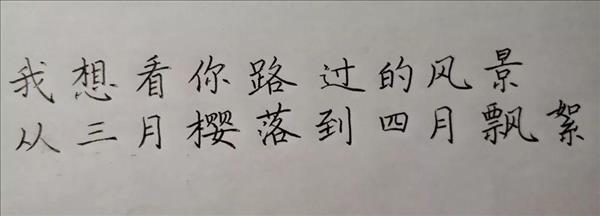 我想看你路过的风景
从三月樱落到四月飘絮